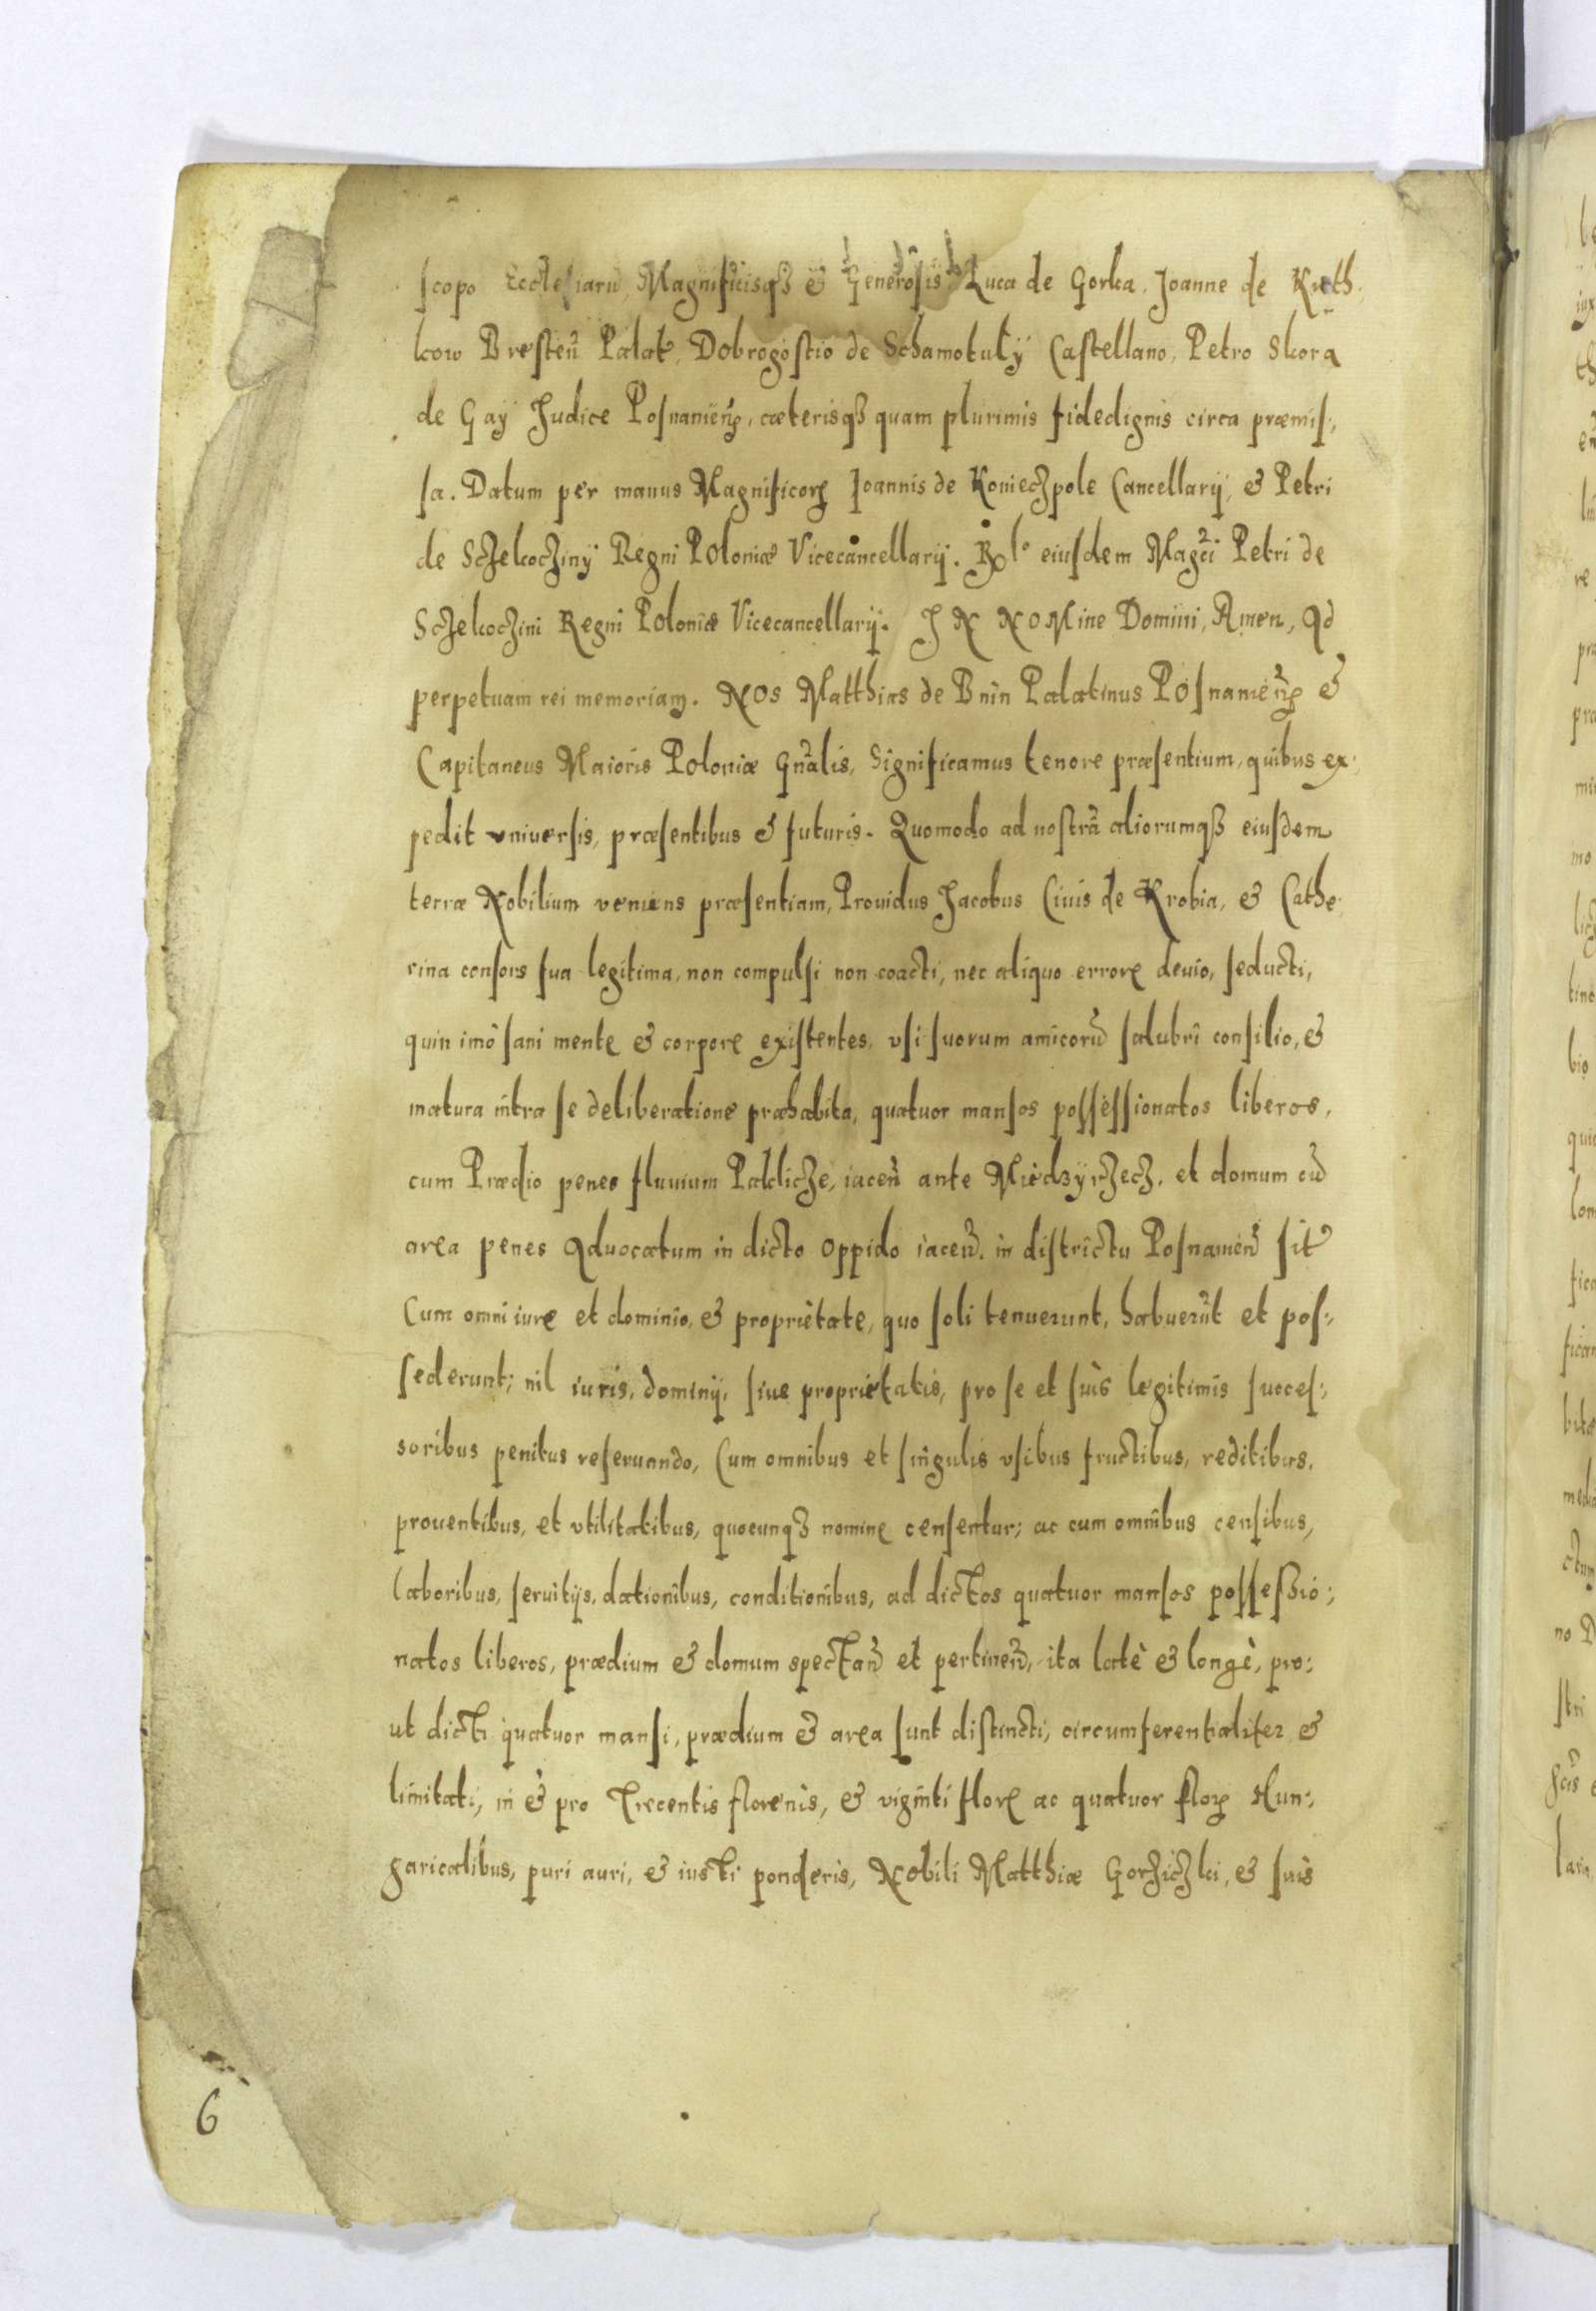 scopo Ecclesiarũ, Magnificisqȝ & Generosis Luca de Gorka, Joanne de Kreth-
kow Bresteñ Palat, Dobrogostio de Schamotuly Castellano, Petro Skora
de Gay Judice Posnanieñ, cæterisqȝ quam plurimis fidedignis circa præmis-
sa. Datum per manus Magnificorꝝ Joannis de Konieczpole Cancellarij, & Petri
de Sczekocziny Regni Poloniæ Vicecancellarij. Rlº eiusdem Magci Petri de
Sczekoczini Regni Poloniæ Vicecancellarij. IN NOMine Domini, Amen, Ad
perpetuam rei memoriam. NOS Matthias de Bnin Palatinus Posnanieñ &
Capitaneus Maioris Poloniæ Gnãlis, Significamus tenore præsentium, quibus ex-
pedit vniuersis, præsentibus & futuris. Quomodo ad nostrã aliorumqȝ eiusdem
terræ Nobilium veniens præsentiam, Prouidus Jacobus Ciuis de Krobia, & Cathe-
rina consors sua legitima, non compulsi non coacti, nec aliquo errore deuio, seducti,
quin imò sani mente & corpore existentes, vsi suorum amicorũ salubri consilio, &
matura intra se deliberatione præhabita, quatuor mansos possessionatos liberos,
cum Prædio penes fluuium Paklicze, iaceñ ante Miedzyrzecz, et domum cũ
area penes Aduocatum in dicto oppido iaceñ. in districtu Posnanieñ sit
Cum omni iure et dominio, & proprietate, quo soli tenuerunt, habuerũt et pos-
sederunt; nil iuris, dominij, siue proprietatis, pro se et suis legitimis succes-
soribus penitus reseruando, Cum omnibus et singulis vsibus fructibus, reditibus,
prouentibus, et vtilitatibus, quocunqȝ nomine censentur; ac cum omnibus censibus,
laboribus, seruitijs, dationibus, conditionibus, ad dictos quatuor mansos possessio-
natos liberos, prædium & domum spectañ et pertineñ, ita latè & longè, pro-
ut dicti quatuor mansi, prædium & area sunt distincti, circumferentialiter &
limitati, in & pro Trecentis florenis, & viginti flore ac quatuor florꝝ Hun-
garicalibus, puri auri, & iusti ponderis, Nobili Matthiæ Gorziczki, & suis
6